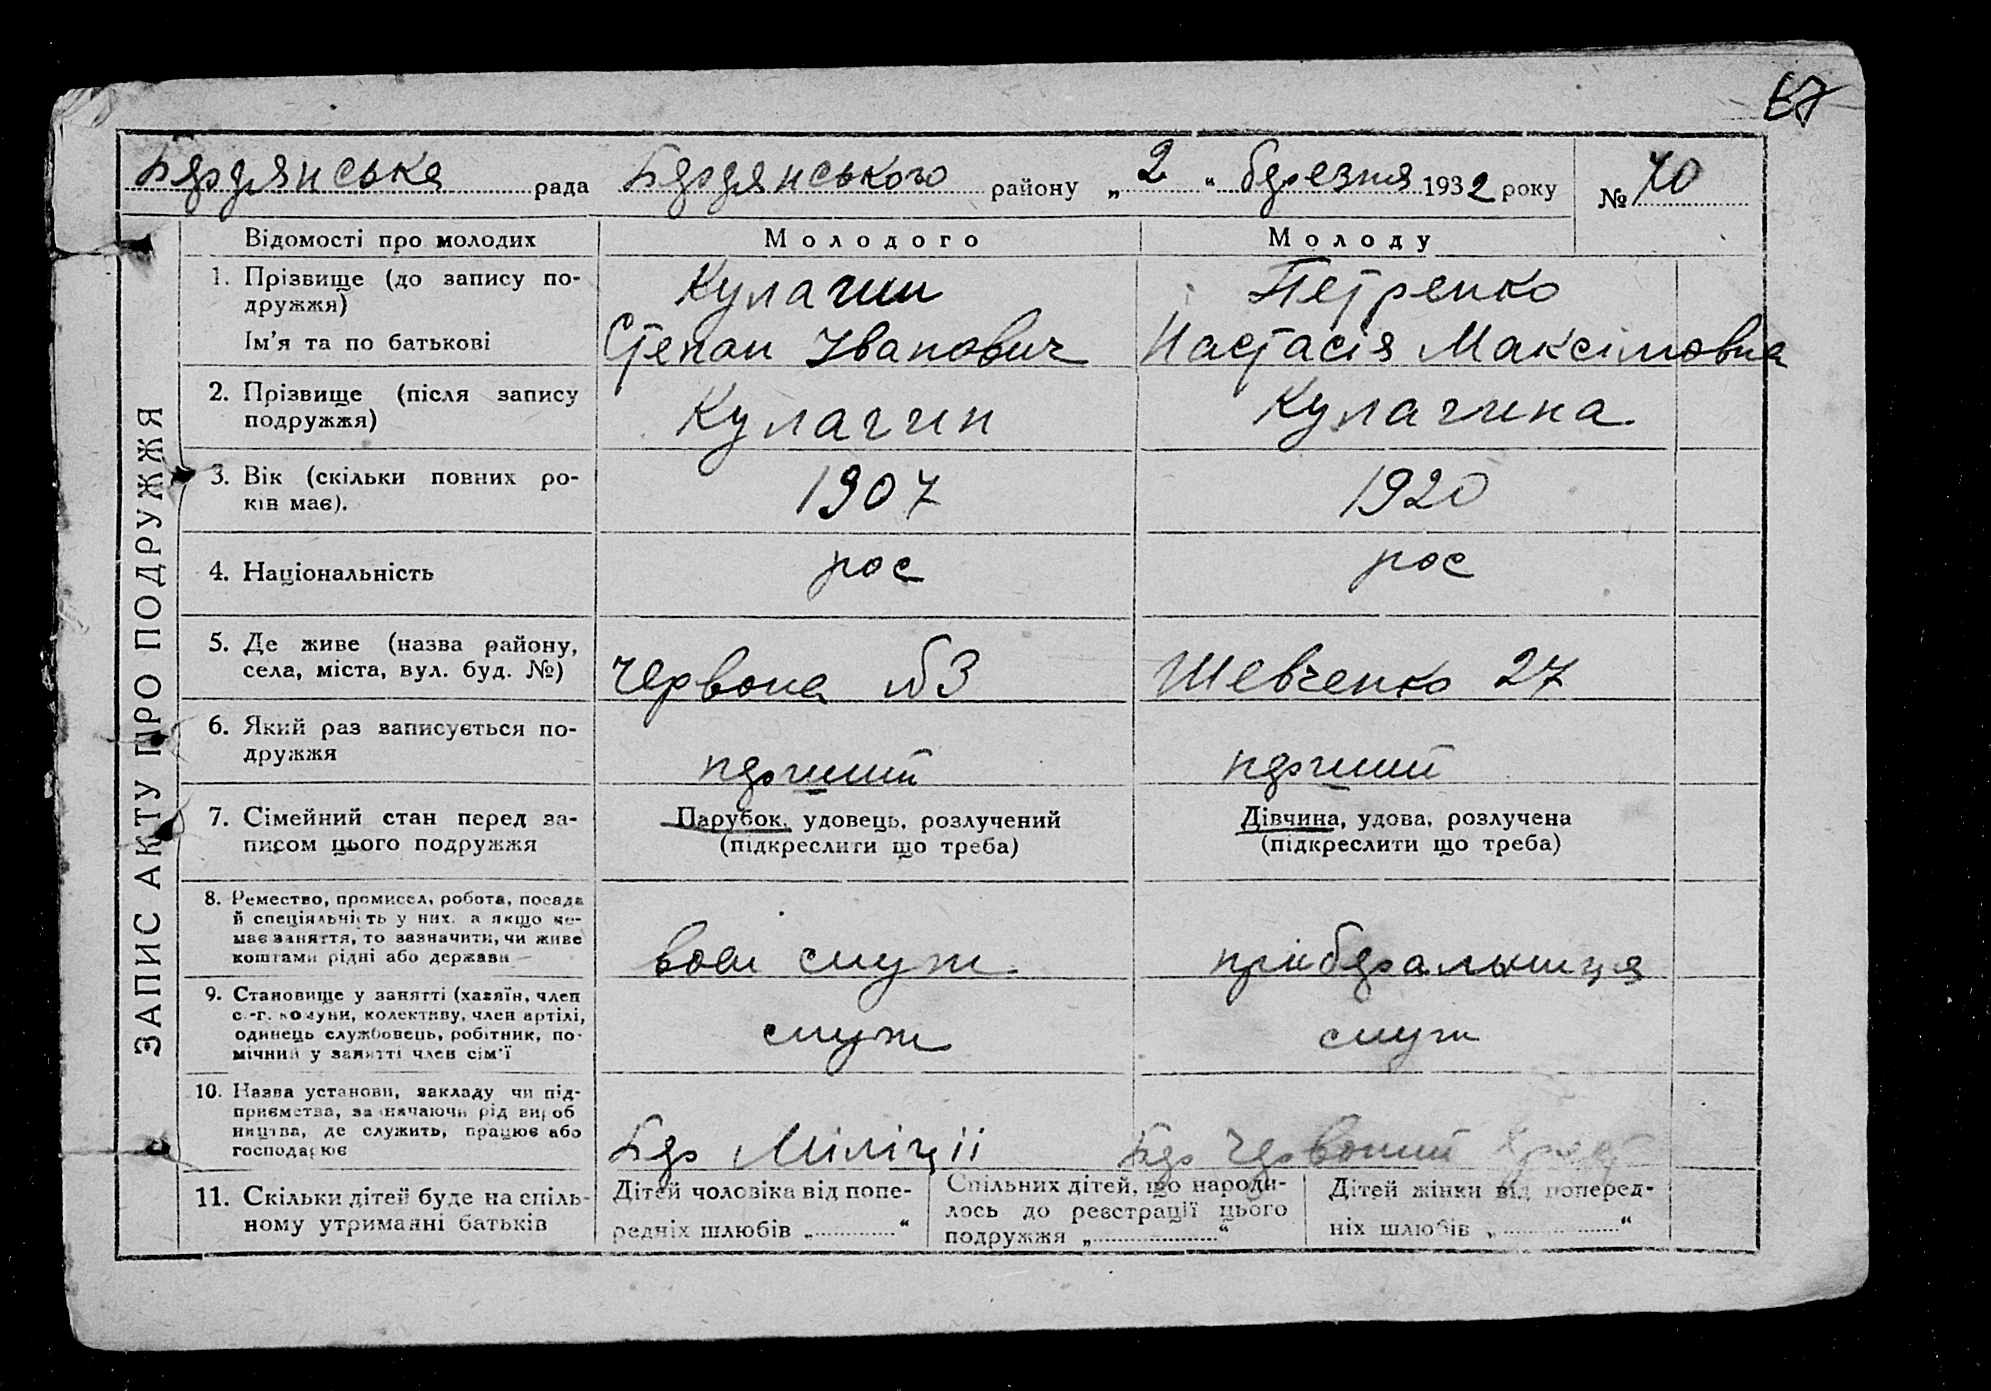 67
Бердянська рада Бердянського району „ 2 “ березня 1932 року № 70
ЗАПИС АКТУ ПРО ПОДРУЖЖЯ
Відомості про молодих Молодого Молоду
1. Прізвище (до запису по-
дружжя) Кулагин Петренко
Ім'я та по батькові Степан Іванович Настасія Максімовна
2. Прізвище (після запису
подружжя) Кулагин Кулагина
3. Вік (скільки повних ро-
ків має). 1907 1920
4. Національність рос рос
5. Де живе (назва району,
села, міста, вул. буд. №) Червона №3 Шевченко 27
6. Який раз записується по-
дружжя перший перший
7. Сімейний стан перед за-
писом цього подружжя
Парубок, удовець, розлучений
(підкреслити що треба)
Дівчина, удова, розлучена
(підкреслити що треба)
8. Ремество, промисел, робота, посада
й спеціяльність у них, а якщо не-
має заняття, то зазначити, чи живе
коштами рідні або держави
воен служ прибералыниця
9. Становище у занятті (хазяїн, член
с.-г. комуни, колективу, член артілі,
одинець службовець, робітник, по-
мічний у занятті член сім'ї
служ служ
10. Назва установи, закладу чи під-
приємства, зазначаючи рід вироб
ництва, де служить, працює або
господарює
Бер Міліціі Бер Червоний
11. Скільки дітей буде на спіль-
ному утриманні батьків
Дітей чоловіка від попе-
редніх шлюбів „ “
Спільних дітей, що народи-
лось до реєстрації цього
подружжя „ “
Дітей жінки від поперед-
ніх шлюбів „ “